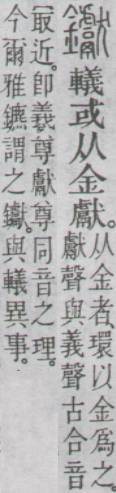 钀轙或从金獻。从金者、環以金爲之、
獻聲與義聲古合音
冣近。卽羲尊獻尊同音之理。
今爾雅鑣謂之钀。與轙異事。